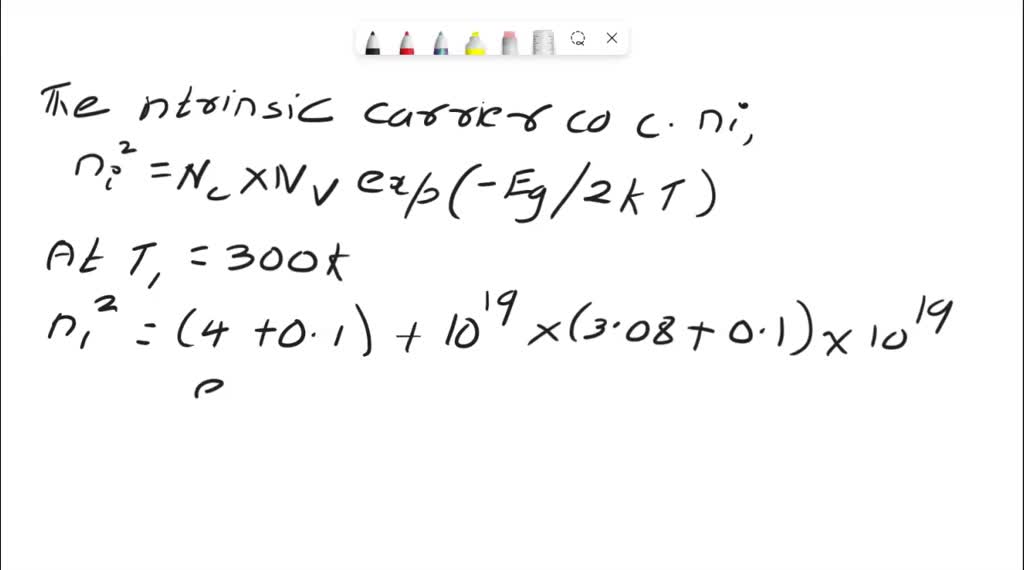 The ntrinsic carrier co c. ni,
ni² = Nc × Nv exp(-Eg/2kT)
At T₁ = 300k
n₁² = (4 + 0.1) + 10¹⁹ × (3.08 + 0.1) × 10¹⁹
e